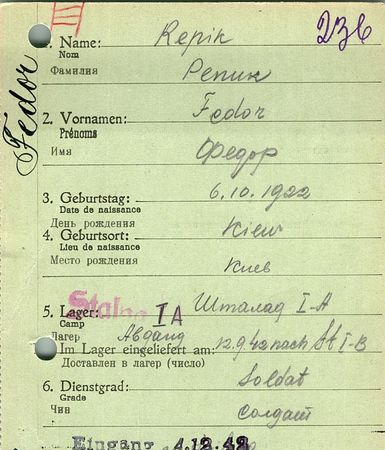 236
Fedor
1. Name: Repik
Nom
Фамилия Репик
2. Vornamen: Fedor
Prénoms
Имя Федор
3. Geburtstag: 6.10.1922
Date de naissance
День рождения
4. Geburtsort: Kiew
Lieu de naissance
Место рождения Киев
5. Lager: Stalag I A Шталаг I-A
Camp
Лагер Abgang 12.9.42 nach St I-B
Im Lager eingeliefert am:
Доставлен в лагер (число)
6. Dienstgrad: Soldat
Grade
Чин Солдат
Eingang 4.12.42